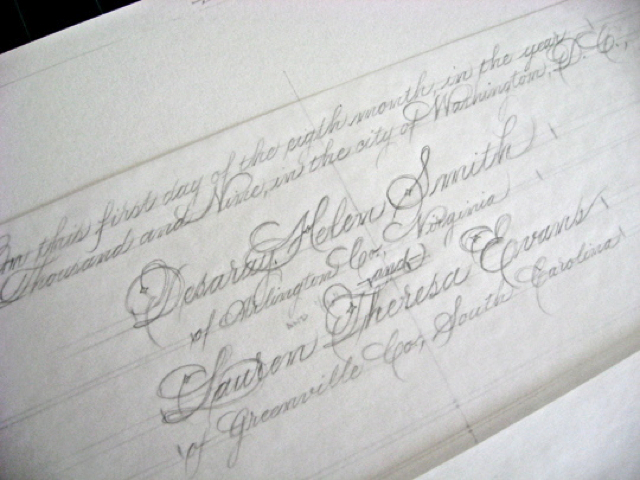 On this first day of the eighth month, in the year
Thousand and Nine, in the city of Washington, D.C.,
Desaray Helen Smith
of Arlington Co, Virginia
and
Lauren Theresa Evans
of Greenville Co, South Carolina